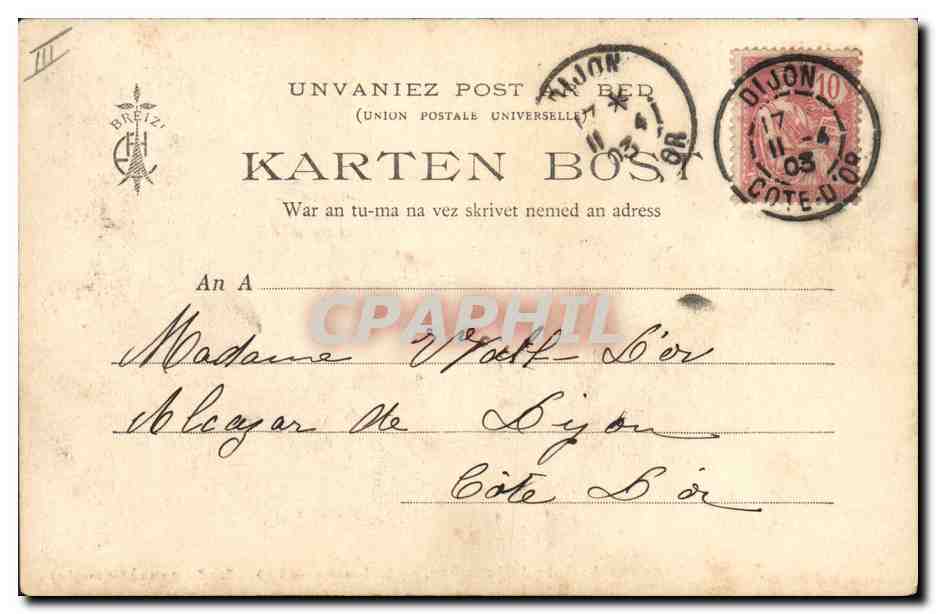 III
UNVANIEZ POST AR BED
(UNION POSTALE UNIVERSELLE)
KARTEN BOST
War an tu-ma na vez skrivet nemed an adress
BREIZ
DIJON
17
11 4
03
OR
10
DIJON
17
11 -4
03
COTE-D'OR
An A
CPAPHIL
Madame D'or
Alcazar de Dijon
Côte D'or